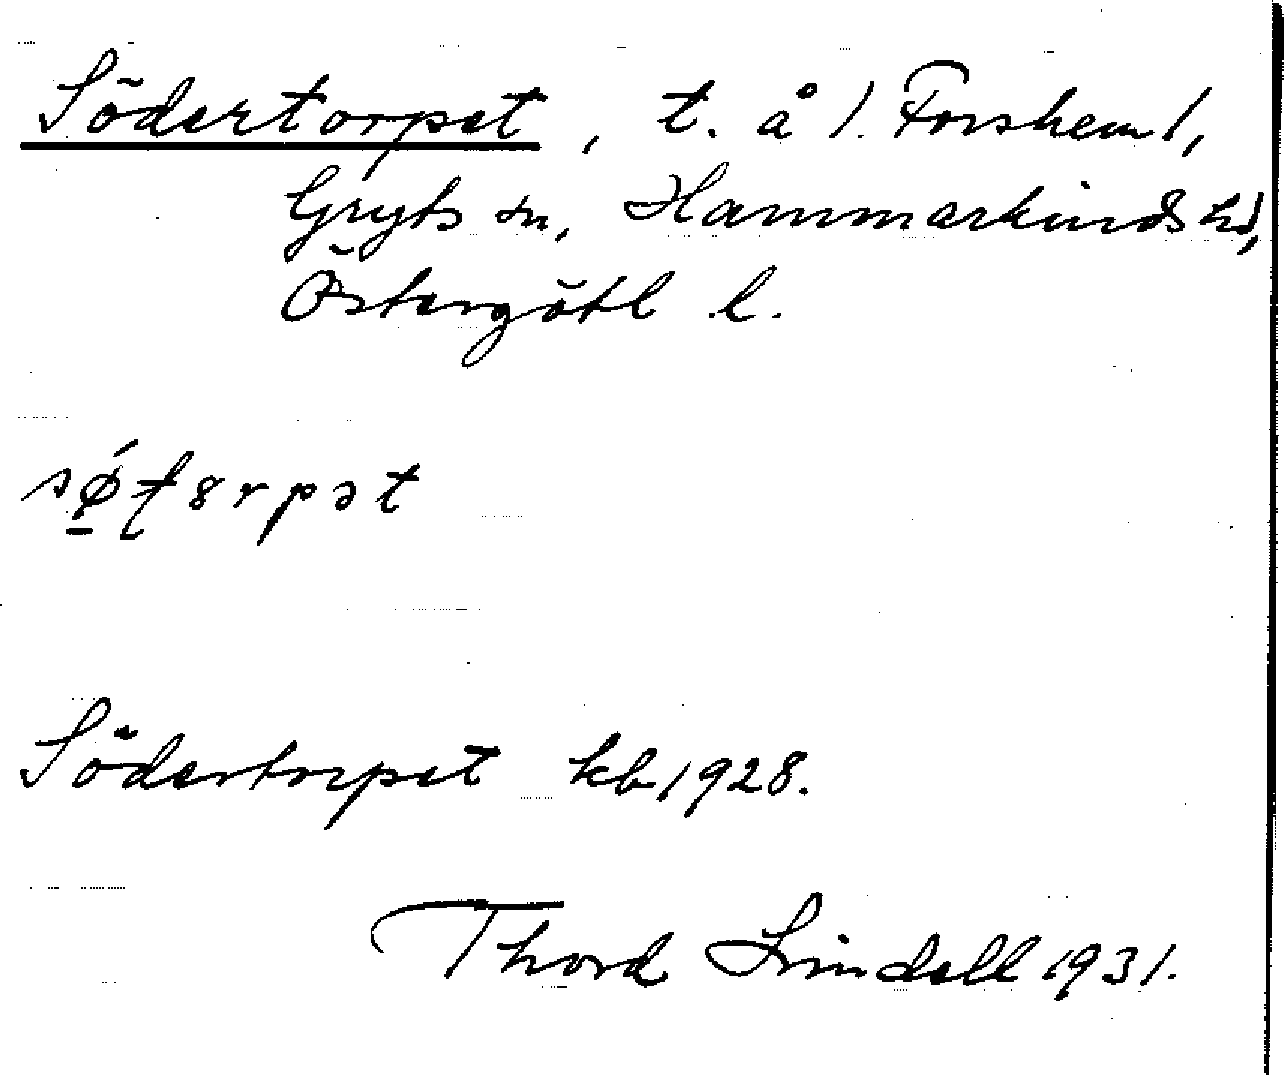 Södertorpet, t. å 1. Forshem 1,
Gryts sn, Hammarkinds hd,
Östergötl l.
sǿ̱ʈ8rpət
Södertorpet kb 1928.
Thord Lindell 1931.